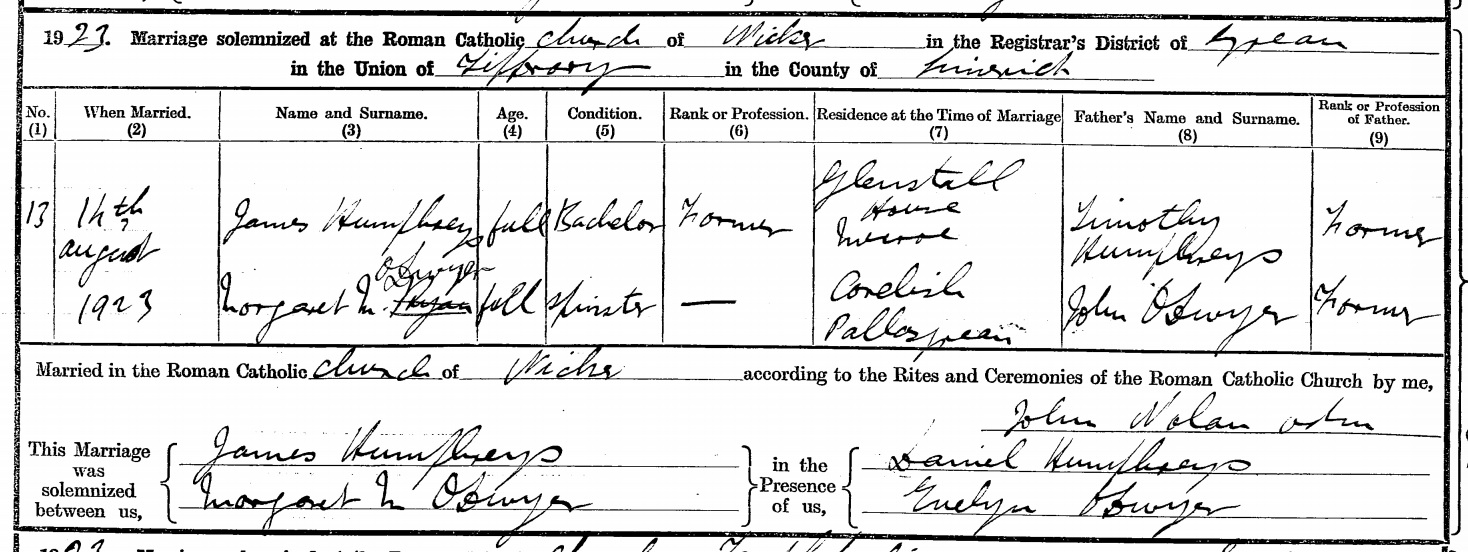 1923. Marriage solemnized at the Roman Catholic church of Nicker in the Registrar's District of Grean
in the Union of Tipperary in the County of Limerick
No. (1) When Married. (2) Name and Surname. (3) Age. (4) Condition. (5) Rank or Profession. (6) Residence at the Time of Marriage (7) Father's Name and Surname. (8) Rank or Profession of Father. (9)
13 14th august 1923 James Humphreys full Bachelor Farmer Glenstall House Murroe Timothy Humphreys Farmer
Margaret M. Ryan O'Dwyer full Spinster — Corelish Pallasgrean John O'Dwyer Farmer
Married in the Roman Catholic church of Nicker according to the Rites and Ceremonies of the Roman Catholic Church by me,
John Nolan adm
This Marriage was solemnized between us,
James Humphreys
Margaret M O'Dwyer
in the Presence of us,
Daniel Humphreys
Evelyn O'Dwyer